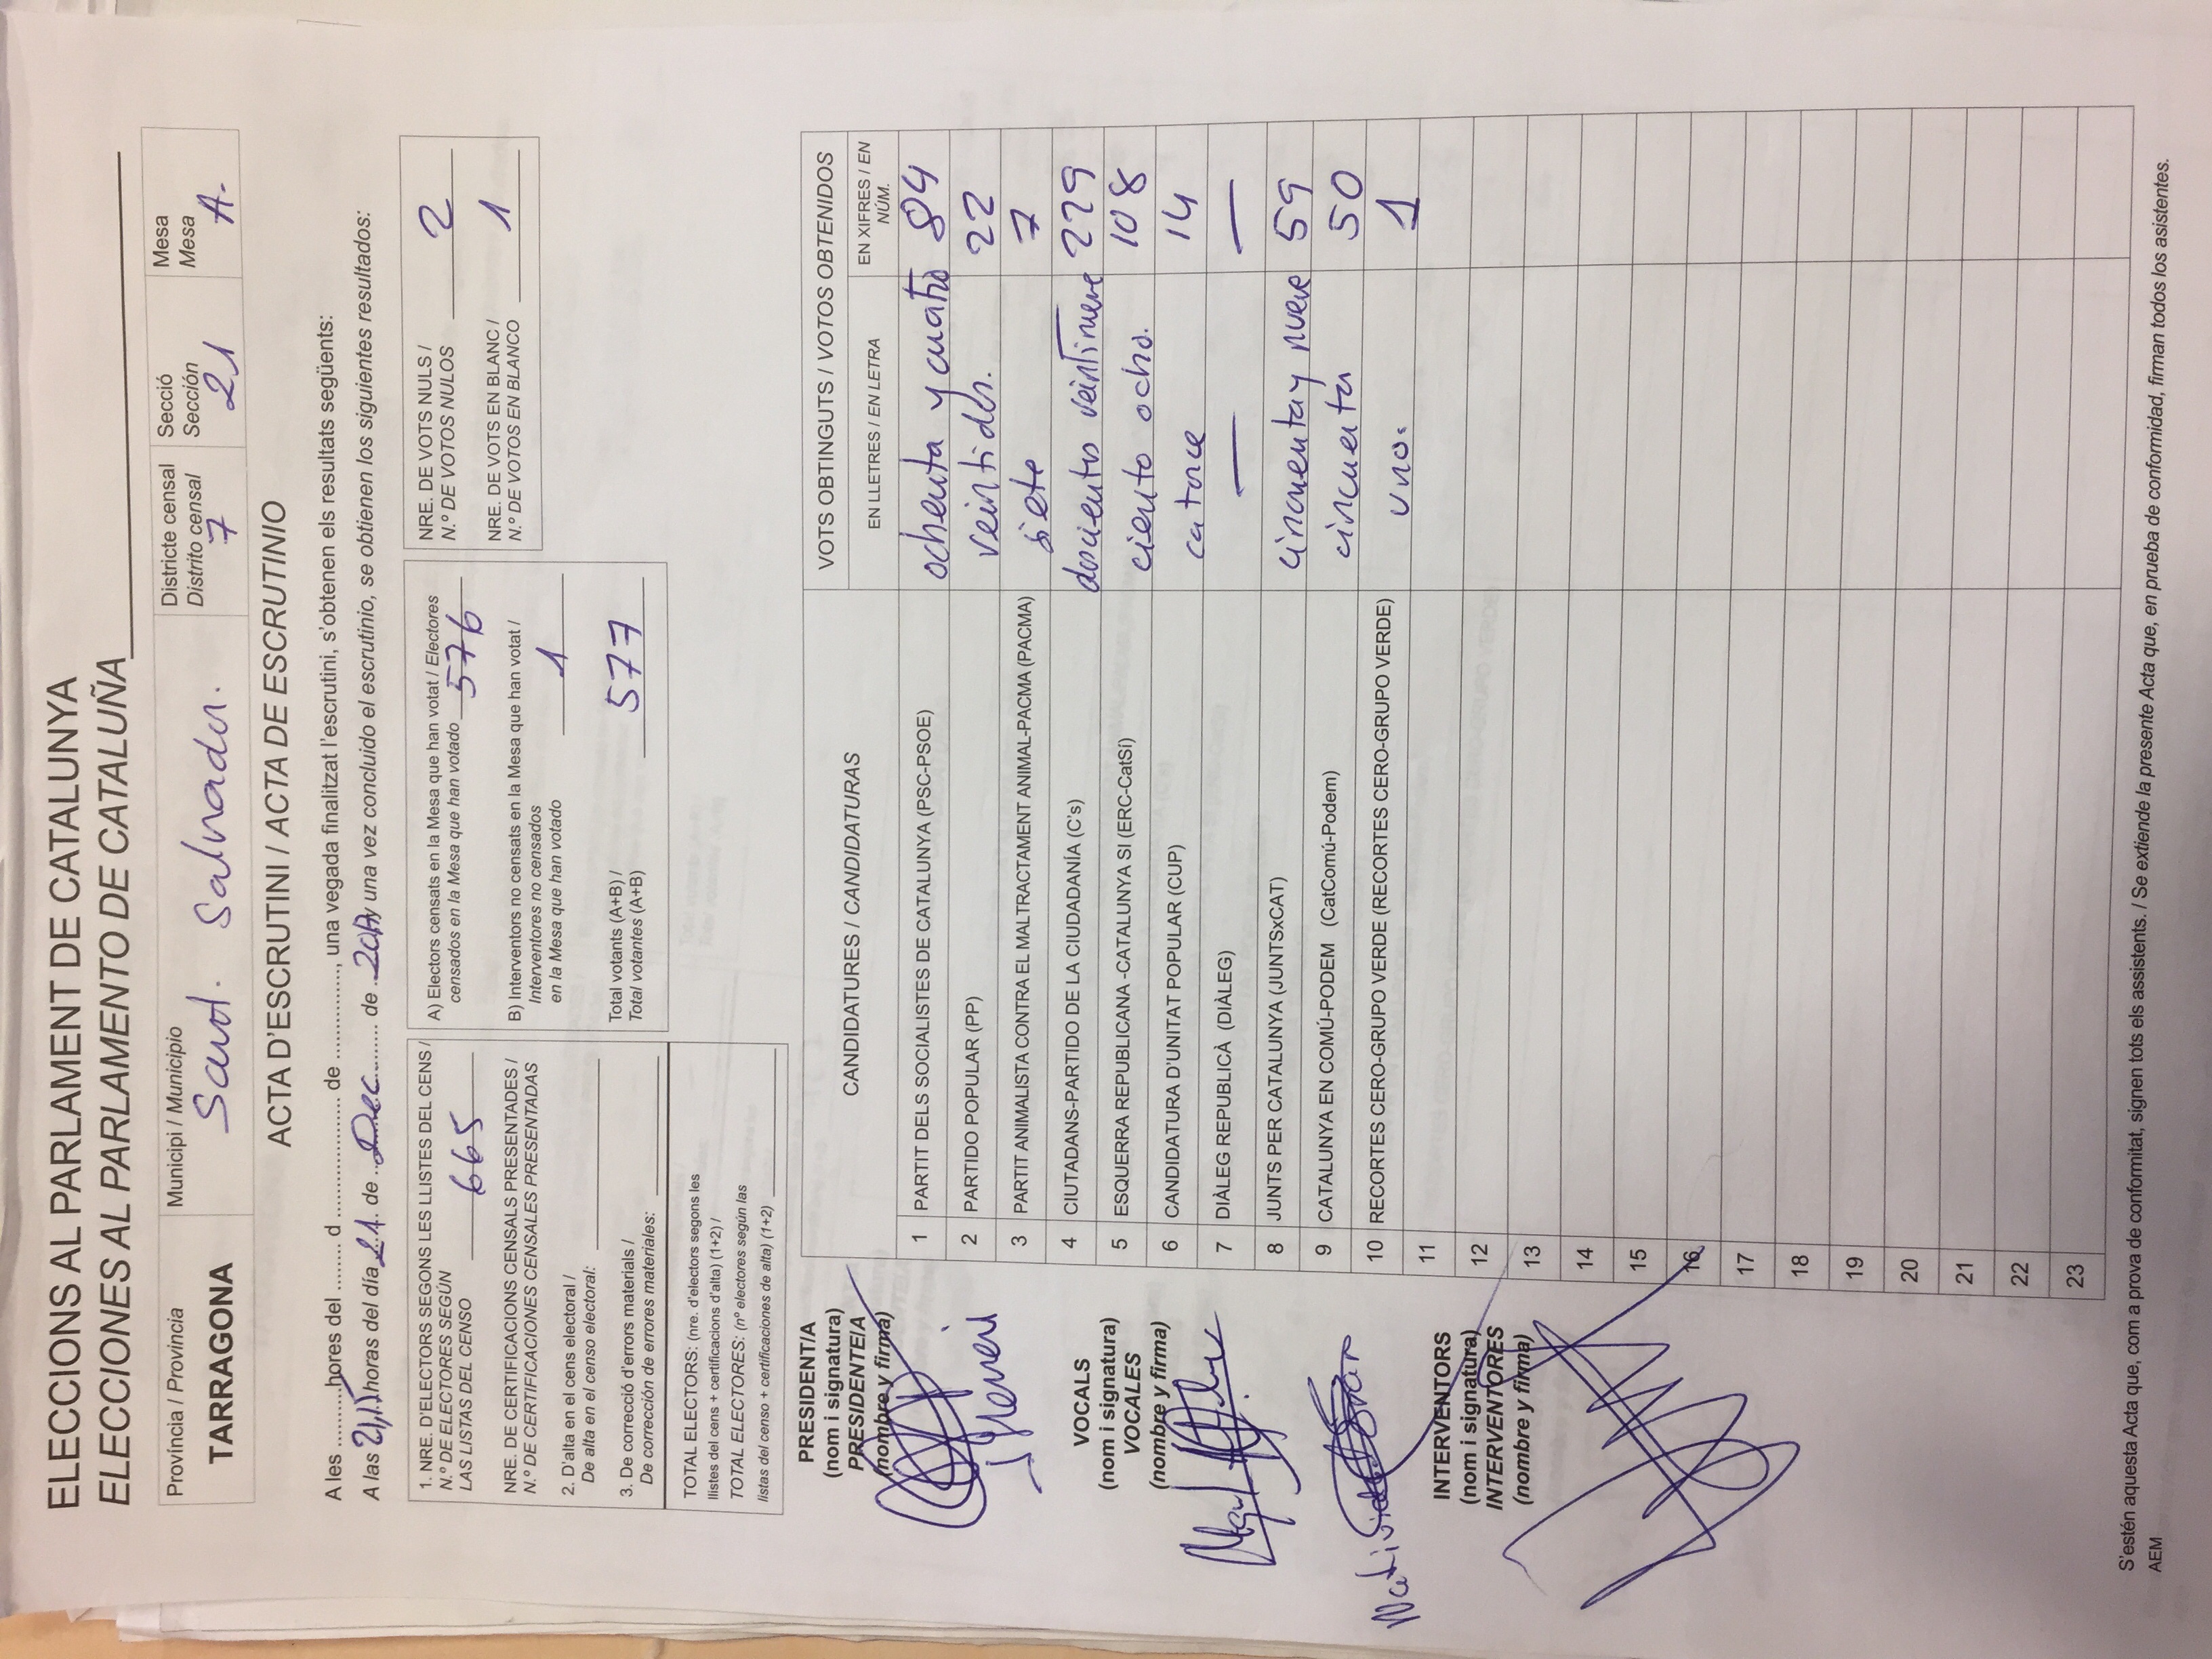 ELECCIONS AL PARLAMENT DE CATALUNYA
ELECCIONES AL PARLAMENTO DE CATALUÑA
Província / Provincia
TARRAGONA
Municipi / Municipio
Salvador.
Districte censal
Distrito censal
7
Secció
Sección
21
Mesa
Mesa
A.
ACTA D'ESCRUTINI / ACTA DE ESCRUTINIO
A les ..........hores del ........ d ..................... de ............., una vegada finalitzat l'escrutini, s'obtenen els resultats següents:
A las 21,15 horas del día 21 de Dec de 2017 y una vez concluido el escrutinio, se obtienen los siguientes resultados:
1. NRE. D'ELECTORS SEGONS LES LLISTES DEL CENS /
N.º DE ELECTORES SEGÚN
LAS LISTAS DEL CENSO 665
NRE. DE CERTIFICACIONS CENSALS PRESENTADES /
N.º DE CERTIFICACIONES CENSALES PRESENTADAS
2. D'alta en el cens electoral /
De alta en el censo electoral:
3. De correcció d'errors materials /
De corrección de errores materiales:
TOTAL ELECTORS: (nre. d'electors segons les
llistes del cens + certificacions d'alta) (1+2) /
TOTAL ELECTORES: (nº electores según las
listas del censo + certificaciones de alta) (1+2)
A) Electors censats en la Mesa que han votat / Electores
censados en la Mesa que han votado 576
B) Interventors no censats en la Mesa que han votat /
Interventores no censados
en la Mesa que han votado 1
Total votants (A+B) /
Total votantes (A+B) 577
NRE. DE VOTS NULS /
N.º DE VOTOS NULOS 2
NRE. DE VOTS EN BLANC /
N.º DE VOTOS EN BLANCO 1
PRESIDENT/A
(nom i signatura)
PRESIDENTE/A
(nombre y firma)
VOCALS
(nom i signatura)
VOCALES
(nombre y firma)
INTERVENTORS
(nom i signatura)
INTERVENTORES
(nombre y firma)
CANDIDATURES / CANDIDATURAS
VOTS OBTINGUTS / VOTOS OBTENIDOS
EN LLETRES / EN LETRA
EN XIFRES / EN
NÚM.
1 PARTIT DELS SOCIALISTES DE CATALUNYA (PSC-PSOE) ochenta y cuatro 84
2 PARTIDO POPULAR (PP) veintidos. 22
3 PARTIT ANIMALISTA CONTRA EL MALTRACTAMENT ANIMAL-PACMA (PACMA) siete 7
4 CIUTADANS-PARTIDO DE LA CIUDADANÍA (C's) doscientos veintinueve 229
5 ESQUERRA REPUBLICANA -CATALUNYA SI (ERC-CatSí) ciento ocho. 108
6 CANDIDATURA D'UNITAT POPULAR (CUP) catorce 14
7 DIÀLEG REPUBLICÀ (DIÀLEG) — —
8 JUNTS PER CATALUNYA (JUNTSxCAT) cincuenta y nueve 59
9 CATALUNYA EN COMÚ-PODEM (CatComú-Podem) cincuenta 50
10 RECORTES CERO-GRUPO VERDE (RECORTES CERO-GRUPO VERDE) uno. 1
11
12
13
14
15
16
17
18
19
20
21
22
23
S'estén aquesta Acta que, com a prova de conformitat, signen tots els assistents. / Se extiende la presente Acta que, en prueba de conformidad, firman todos los asistentes.
AEM